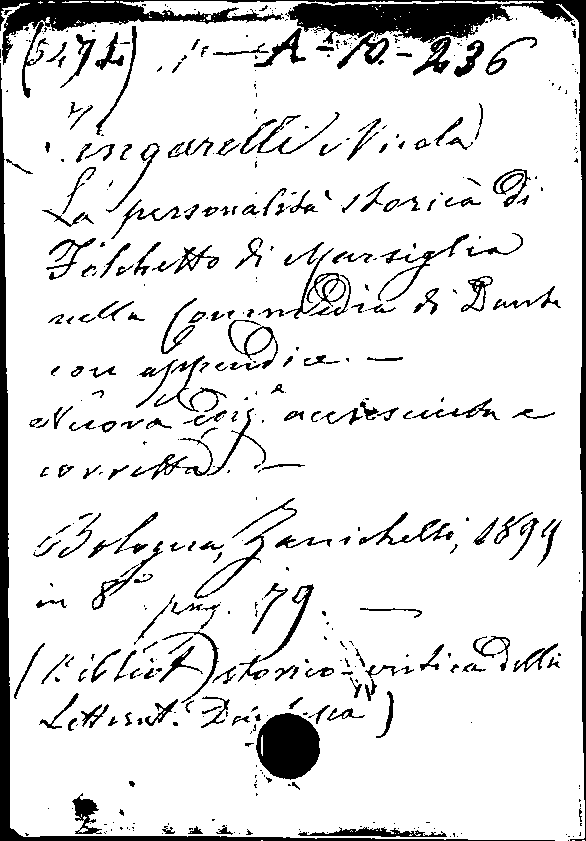 A - 10. - 236
Zingarelli Nicola
La personalità storica di
Folchetto di Marsiglia
nella Commedia di Dante
con appendice. —
Nuova ediz.e accresciuta e
corretta. —
Bologna, Zanichelli, 1899
in 8° pag. 79. —
(Bibliot. storico-critica della
Letterat. Dantesca)